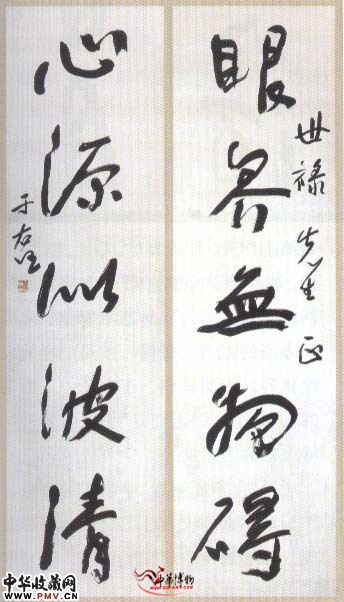 眼界無物礙
世祿先生正
心源似波清
于右任
中华收藏网
www.PMV.cn
中华博物